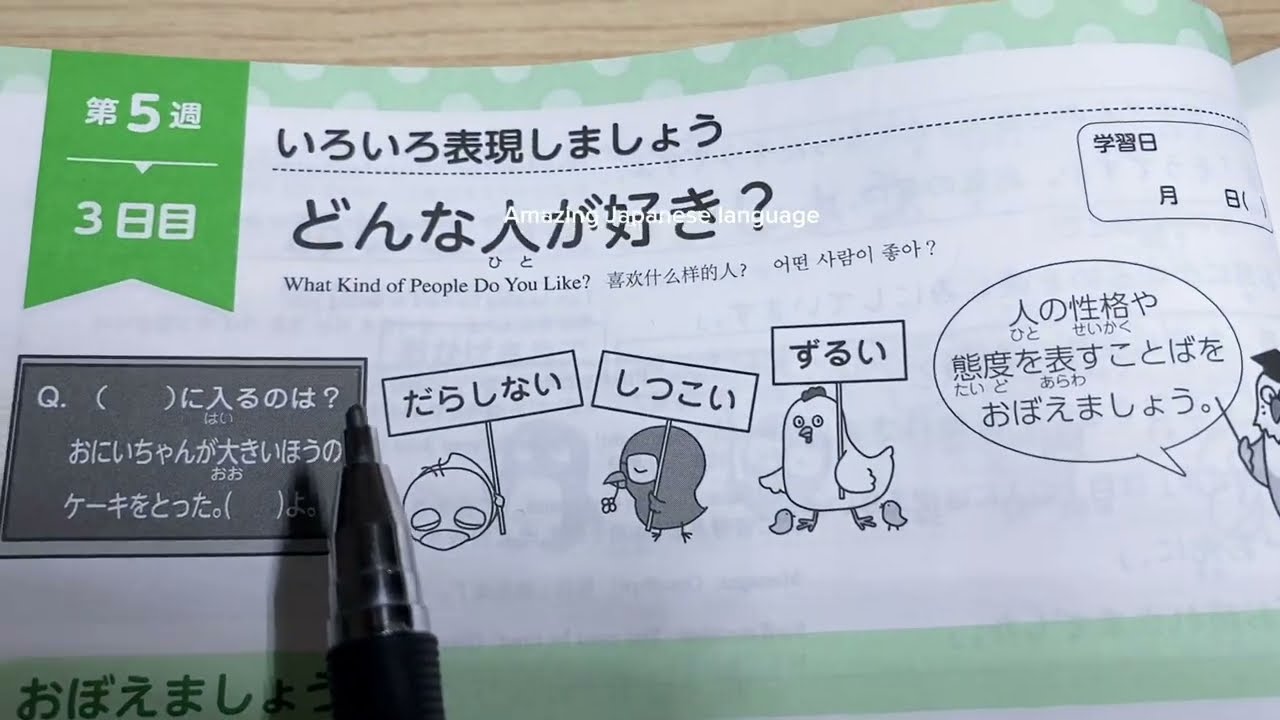 第5週
3日目
いろいろ表現しましょう
どんな人が好き？
ひと
What Kind of People Do You Like? 喜欢什么样的人? 어떤 사람이 좋아?
Amazing Japanese language
学習日
月 日( )
Q. ( )に入るのは？
はい
おにいちゃんが大きいほうの
おお
ケーキをとった。( )よ。
だらしない
しつこい
ずるい
人の性格や
ひと せいかく
態度を表すことばを
たいど あらわ
おぼえましょう。
おぼえましょう